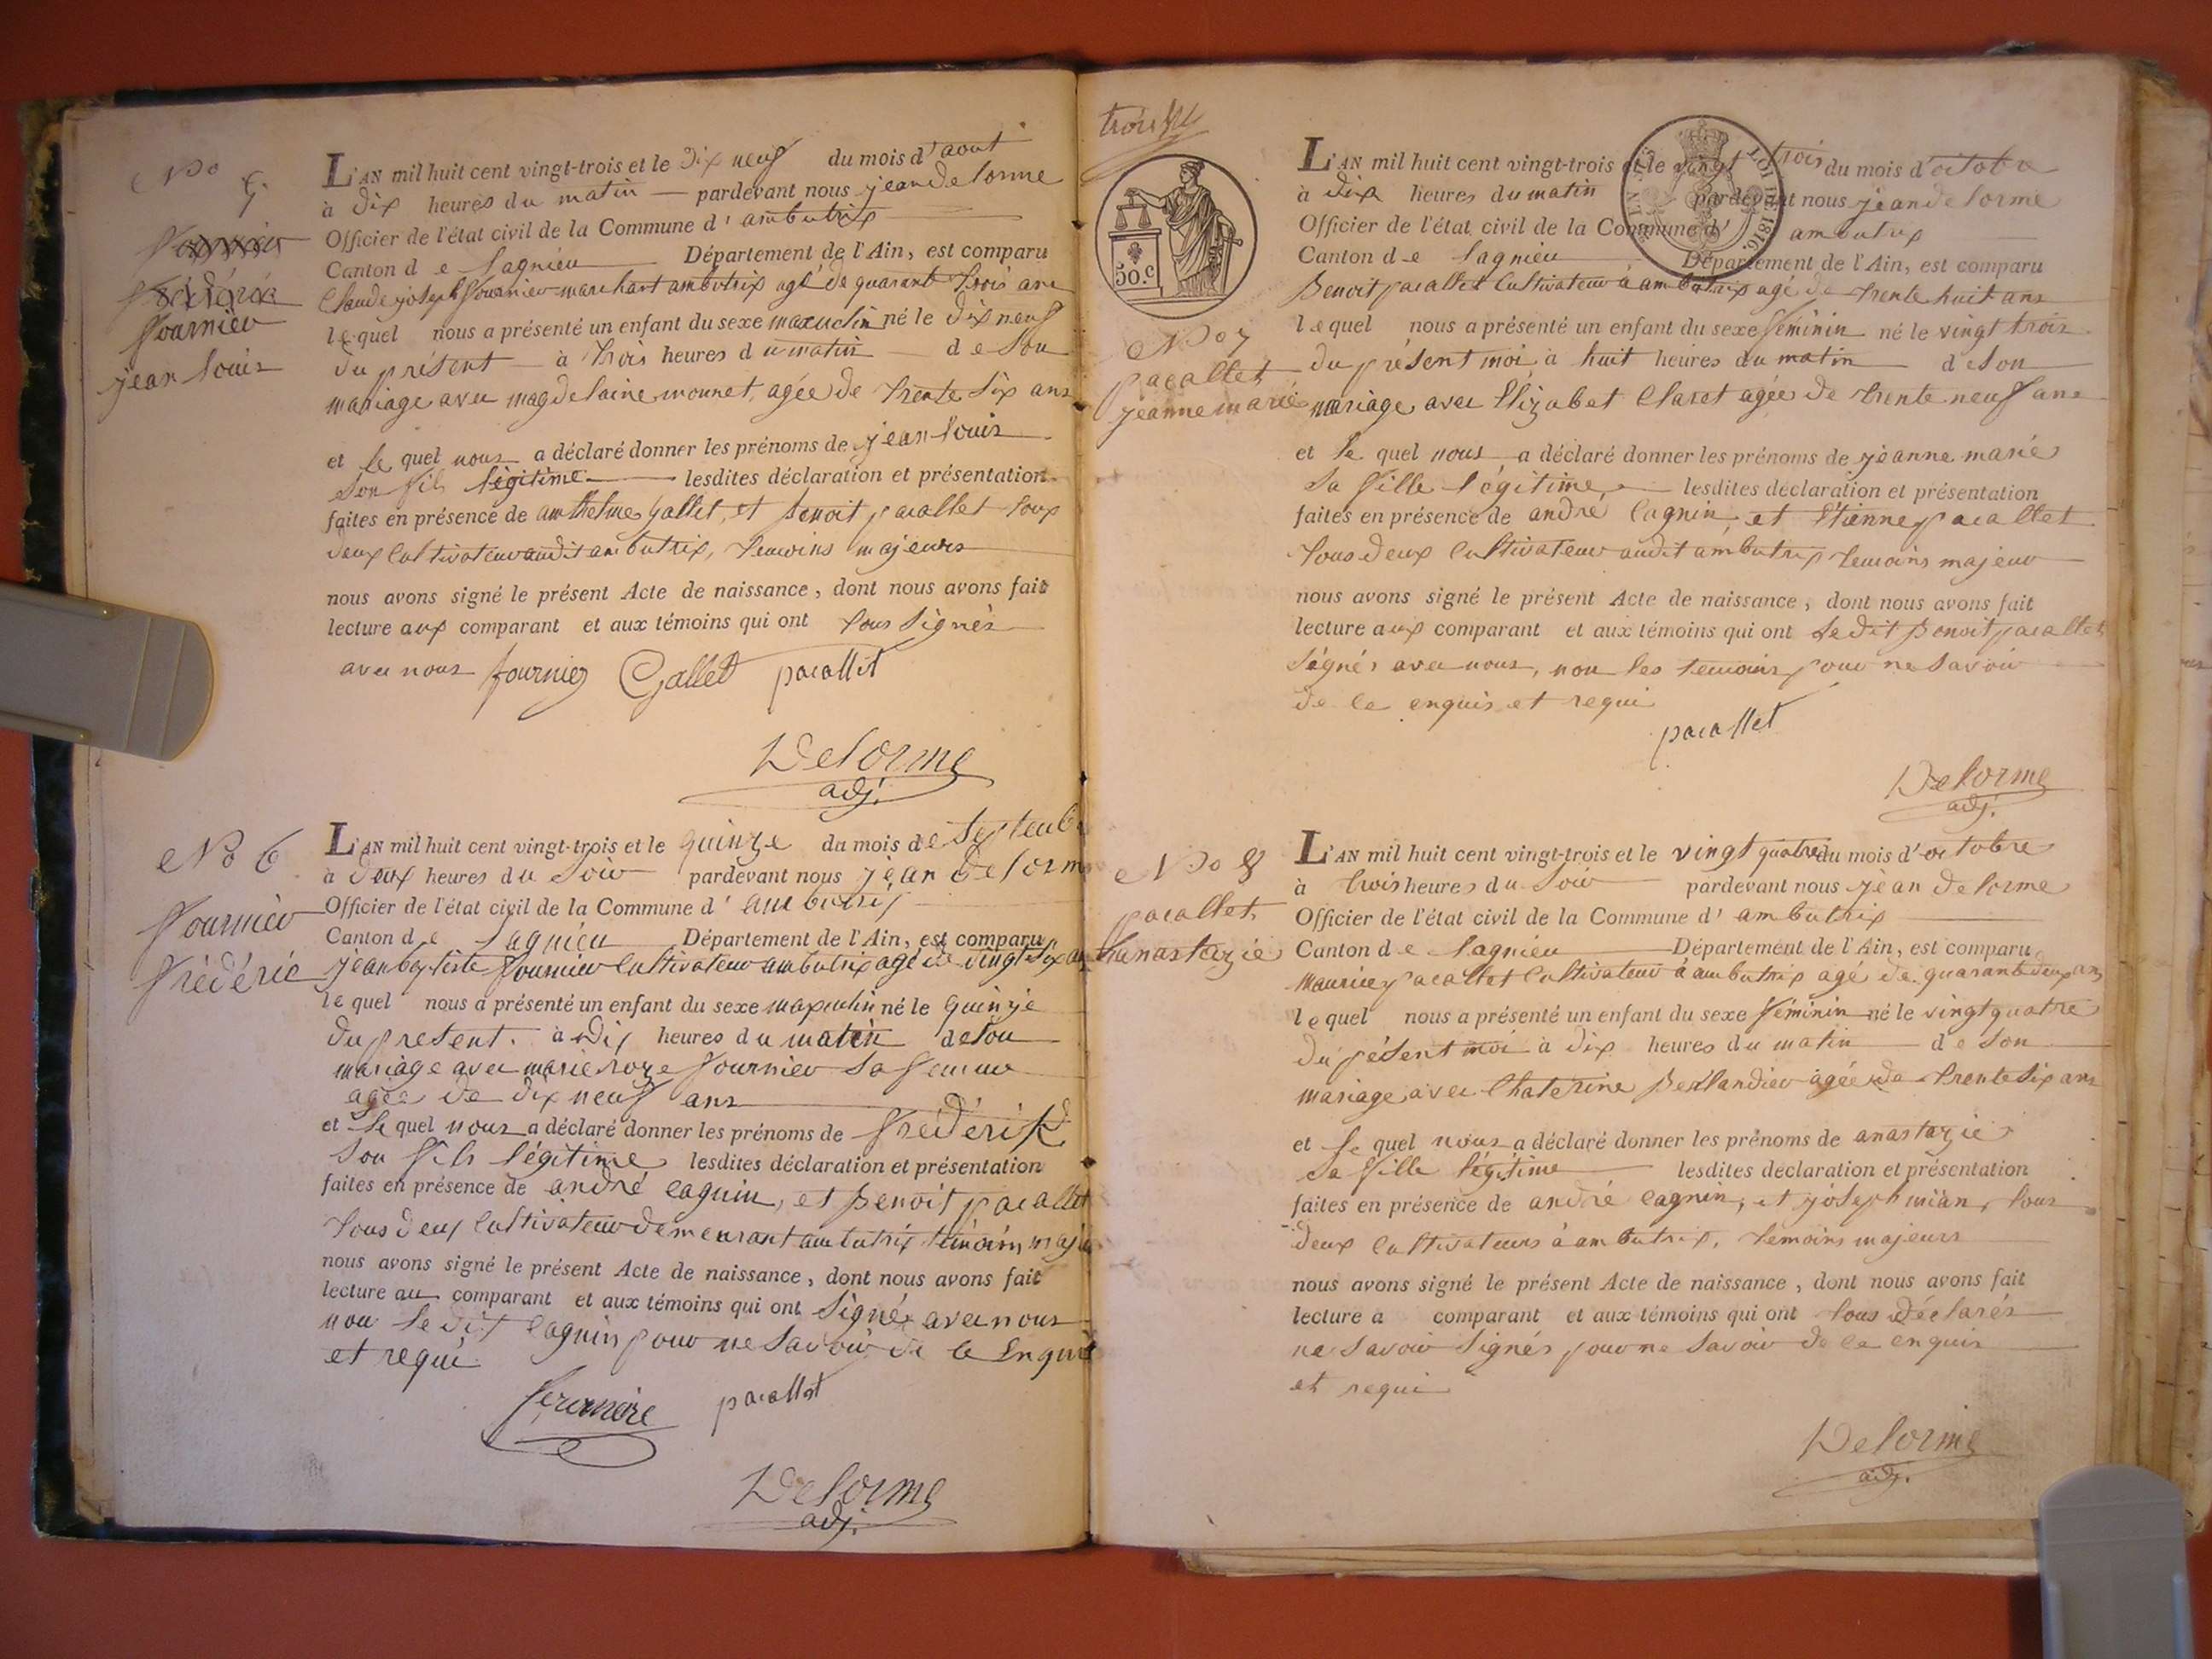 No 5.
Fournier
frédéric
fournier
jean louis
L'AN mil huit cent vingt-trois et le dix neuf du mois d'aout
à dix heures du matin pardevant nous jean delorme
Officier de l'état civil de la Commune d'ambutrix
Canton de lagnieu Département de l'Ain, est comparu
Claude joseph fournier marchant ambutrix agé de quarant trois ans
lequel nous a présenté un enfant du sexe masculin né le dix neuf
du présent à trois heures du matin de son
mariage avec magdelaine monnet, agée de trente six ans
et le quel nous a déclaré donner les prénoms de jean louis
son fils légitime lesdites déclaration et présentation
faites en présence de anthelme gallet, et benoit pacallet tous
deux cultivateur audit ambutrix, temoins majeurs
nous avons signé le présent Acte de naissance, dont nous avons fait
lecture aux comparant et aux témoins qui ont tous signés
avec nous fournier Gallet pacallet
Delorme
adj.
No 6
fournier
frédéric
L'AN mil huit cent vingt-trois et le quinze du mois de septemb
à deux heures du soir pardevant nous jean delorm
Officier de l'état civil de la Commune d'ambutrix
Canton de lagnieu Département de l'Ain, est comparu
jean baptiste fournier cultivateur ambutrix agé de vingt six an
lequel nous a présenté un enfant du sexe masculin né le quinze
du present. à dix heures du matin de son
mariage avec marie roze fournier sa femme
agée de dix neuf ans
et le quel nous a déclaré donner les prénoms de frédérik
son fils légitime lesdites déclaration et présentation
faites en présence de andré cagnin, et benoit pacallet
tous deux cultivateur demeurant ambutrix témoins maje
nous avons signé le présent Acte de naissance, dont nous avons fait
lecture au comparant et aux témoins qui ont signés avec nous
non le dit cagnin pour ne savoir de ce Enquis
et requi
pacallet
Delorme
adj.
50.c
LOI DE 1816.
No 7
pacallet
jeanne marie
L'AN mil huit cent vingt-trois et le vingt trois du mois d'octobre
à dix heures du matin pardevant nous jean delorme
Officier de l'état civil de la Commune d'ambutrix
Canton de lagnieu Département de l'Ain, est comparu
Benoit pacallet Cultivateur à ambutrix agé de trente huit ans
lequel nous a présenté un enfant du sexe féminin né le vingt trois
du présent moi à huit heures du matin de son
mariage avec Elizabet Claret agée de trente neuf ans
et le quel nous a déclaré donner les prénoms de jeanne marie
sa fille légitime lesdites déclaration et présentation
faites en présence de andré cagnin, et Etienne pacallet
tous deux cultivateur audit ambutrix temoins majeur
nous avons signé le présent Acte de naissance, dont nous avons fait
lecture aux comparant et aux témoins qui ont ledit benoit pacallet
signés avec nous, non les temoins pour ne savoir
de ce enquis et requi
pacallet
Delorme
adj.
No 8
pacallet
anastazie
L'AN mil huit cent vingt-trois et le vingt quatre du mois d'octobre
à trois heures du soir pardevant nous jean delorme
Officier de l'état civil de la Commune d'ambutrix
Canton de lagnieu Département de l'Ain, est comparu
maurice pacallet cultivateur à ambutrix agé de quarante deux ans
lequel nous a présenté un enfant du sexe féminin né le vingt quatre
du pésent moi à dix heures du matin de son
mariage avec Chaterine agée de trente six ans
et le quel nous a déclaré donner les prénoms de anastazie
sa fille légitime lesdites déclaration et présentation
faites en présence de andré cagnin, et joseph mian, tous
deux cultivateurs à ambutrix, temoins majeurs
nous avons signé le présent Acte de naissance, dont nous avons fait
lecture a comparant et aux témoins qui ont tous déclarés
ne savoir signés pour ne savoir de ce enquis
et requi
Delorme
adj.